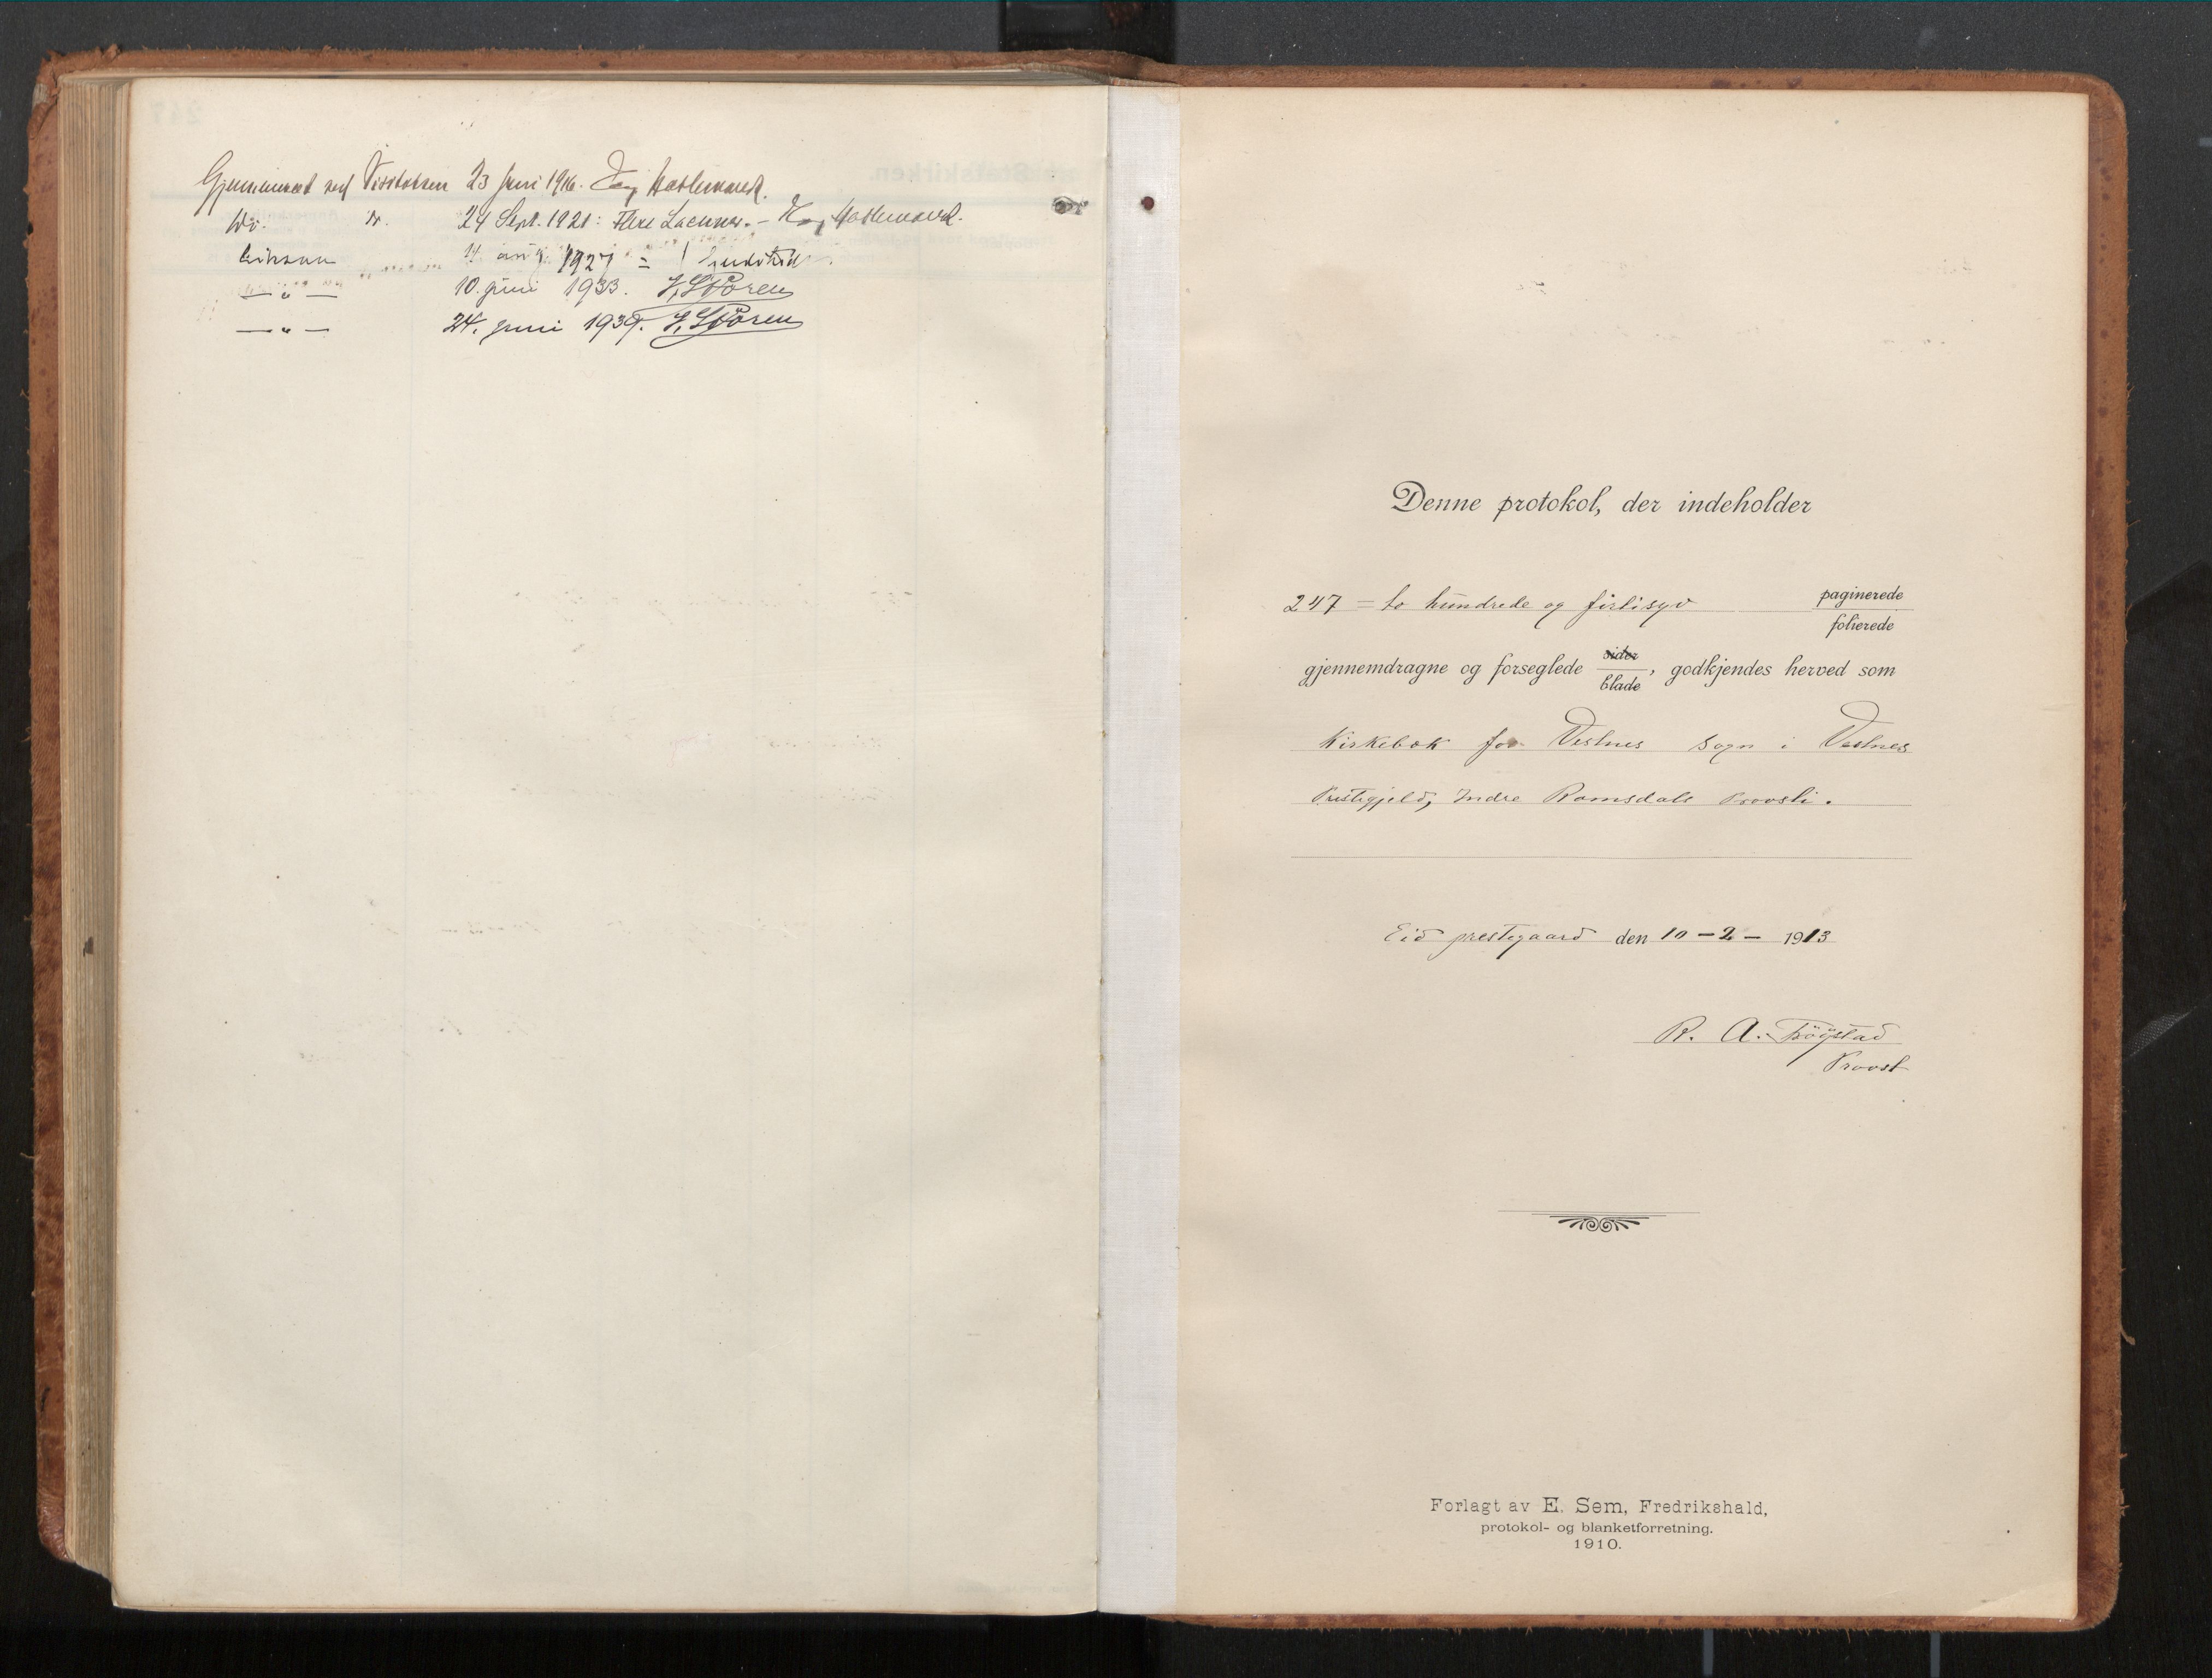 Gjennemset ved Visitatsen 23 Juni 1916.
Do. Do. 24 Sept. 1921: Flere Lacuner. –
14 aug. 1927 =
— " — 10. juni 1933. J. Støren
— " — 24. juni 1939. J. Støren
Denne protokol, der indeholder
247 = to hundrede og firtisyv paginerede
folierede
gjennemdragne og forseglede sider
blade, godkjendes herved som
Kirkebok for Vestnes sogn i Vestnes
Prestegjeld, Indre Romsdals Provsti.
Eid prestegaard den 10 – 2 – 1913
R. A. Trögstad
Provst
Forlagt av E. Sem, Fredrikshald,
protokol- og blanketforretning.
1910.